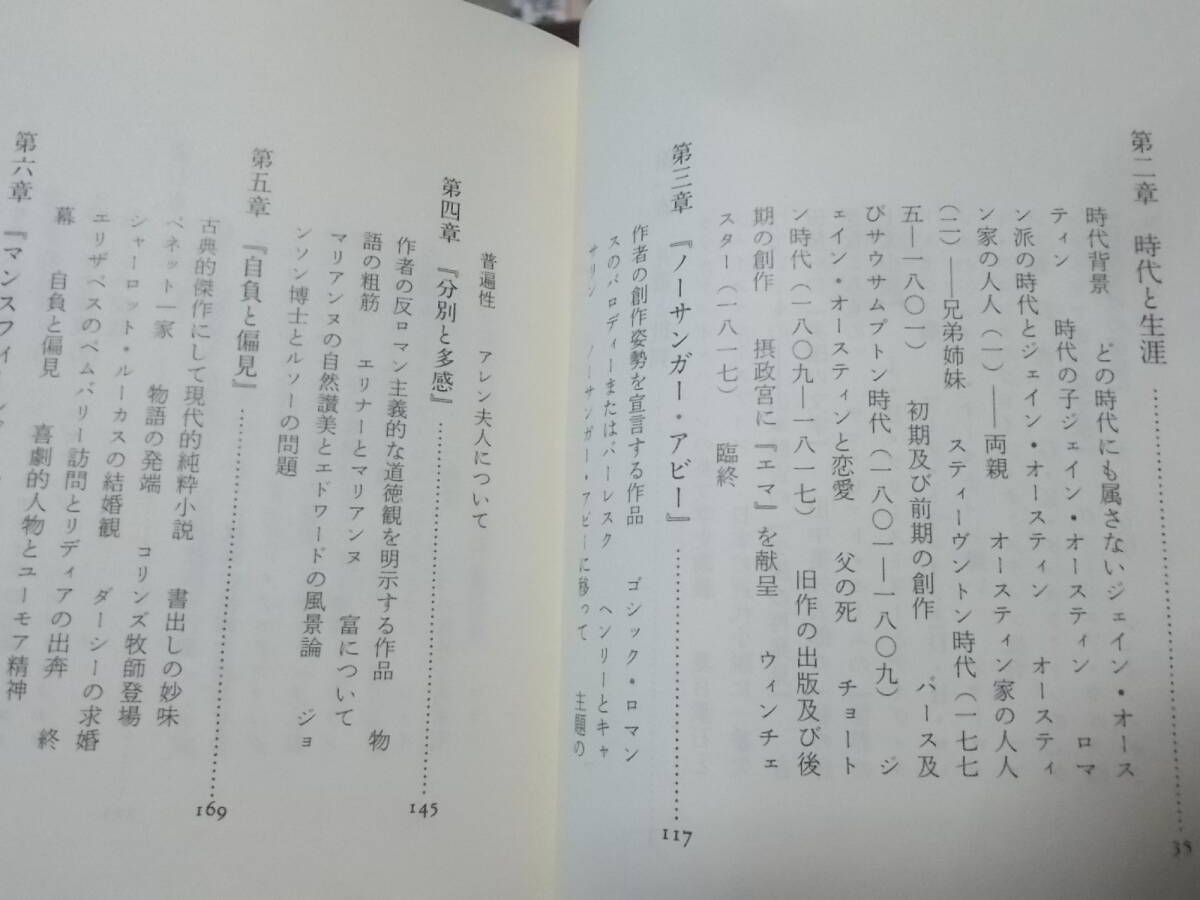 第二章　時代と生涯……………35
時代背景　どの時代にも属さないジェイン・オース
ティン　時代の子ジェイン・オースティン　ロマ
ン派の時代とジェイン・オースティン　オースティ
ン家の人人（一）――両親　オースティン家の人人
（二）――兄弟姉妹　スティーヴントン時代（一七七
五―一八〇一）　初期及び前期の創作　バース及
びサウサムプトン時代（一八〇一―一八〇九）　ジ
ェイン・オースティンと恋愛　父の死　チョート
ン時代（一八〇九―一八一七）　旧作の出版及び後
期の創作　摂政宮に『エマ』を献呈　ウィンチェ
スター（一八一七）　臨終
第三章　『ノーサンガー・アビー』……………117
作者の創作姿勢を宣言する作品　ゴシック・ロマン
スのパロディーまたはバーレスク　ヘンリーとキャ
サリン　ノーサンガー・アビーに移って　主題の
普遍性　アレン夫人について
第四章　『分別と多感』……………145
作者の反ロマン主義的な道徳観を明示する作品　物
語の粗筋　エリナーとマリアンヌ　富について
マリアンヌの自然讃美とエドワードの風景論　ジョ
ンソン博士とルソーの問題
第五章　『自負と偏見』……………169
古典的傑作にして現代的純粋小説　書出しの妙味
ベネット一家　物語の発端　コリンズ牧師登場
シャーロット・ルーカスの結婚観　ダーシーの求婚
エリザベスのペムバリー訪問とリディアの出奔　終
幕　自負と偏見　喜劇的人物とユーモア精神
第六章　『マンスフィー